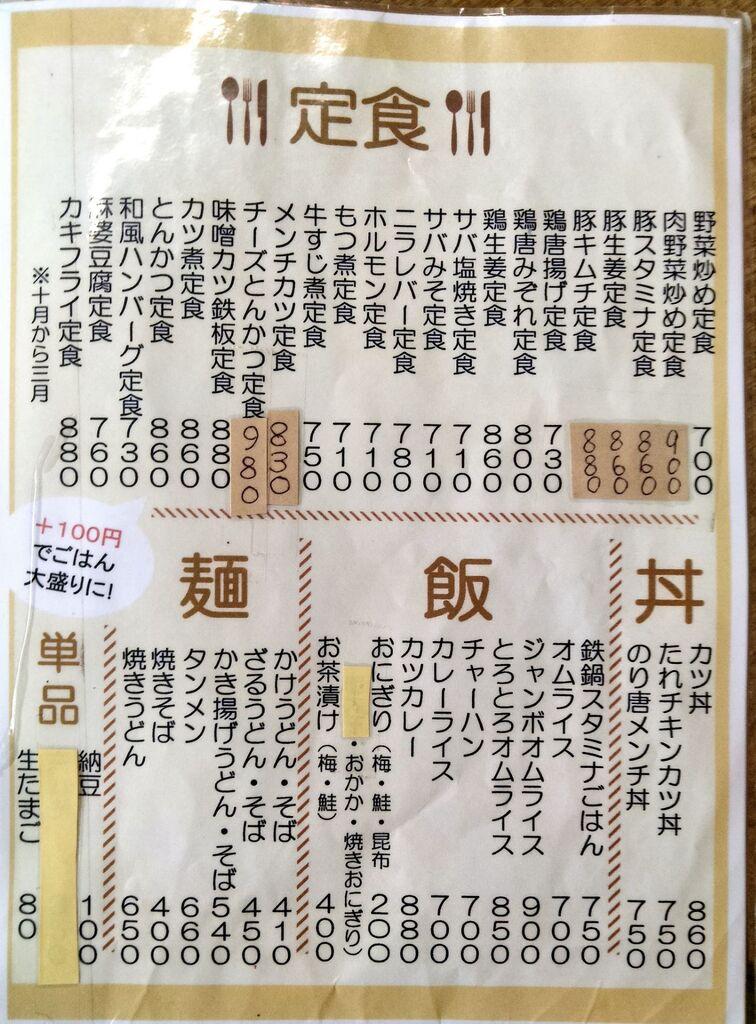 定食
野菜炒め定食 700
肉野菜炒め定食 900
豚スタミナ定食 860
豚生姜定食 860
豚キムチ定食 880
鶏唐揚げ定食 730
鶏唐みぞれ定食 800
鶏生姜定食 860
サバ塩焼き定食 710
サバみそ定食 710
ニラレバー定食 780
ホルモン定食 710
もつ煮定食 710
牛すじ煮定食 750
メンチカツ定食 830
チーズとんかつ定食 980
味噌カツ鉄板定食 880
カツ煮定食 860
とんかつ定食 860
和風ハンバーグ定食 730
麻婆豆腐定食 760
カキフライ定食 880
※十月から三月
丼
カツ丼 860
たれチキンカツ丼 750
のり唐メンチ丼 750
飯
鉄鍋スタミナごはん 750
オムライス 700
ジャンボオムライス 900
とろとろオムライス 850
チャーハン 700
カレーライス 700
カツカレー 880
おにぎり（梅・鮭・昆布 200
・おかか・焼きおにぎり）
お茶漬け（梅・鮭） 400
麺
かけうどん・そば 410
ざるうどん・そば 450
かき揚げうどん・そば 540
タンメン 660
焼きそば 400
焼きうどん 650
＋100円
でごはん
大盛りに!
単品
納豆 100
生たまご 80